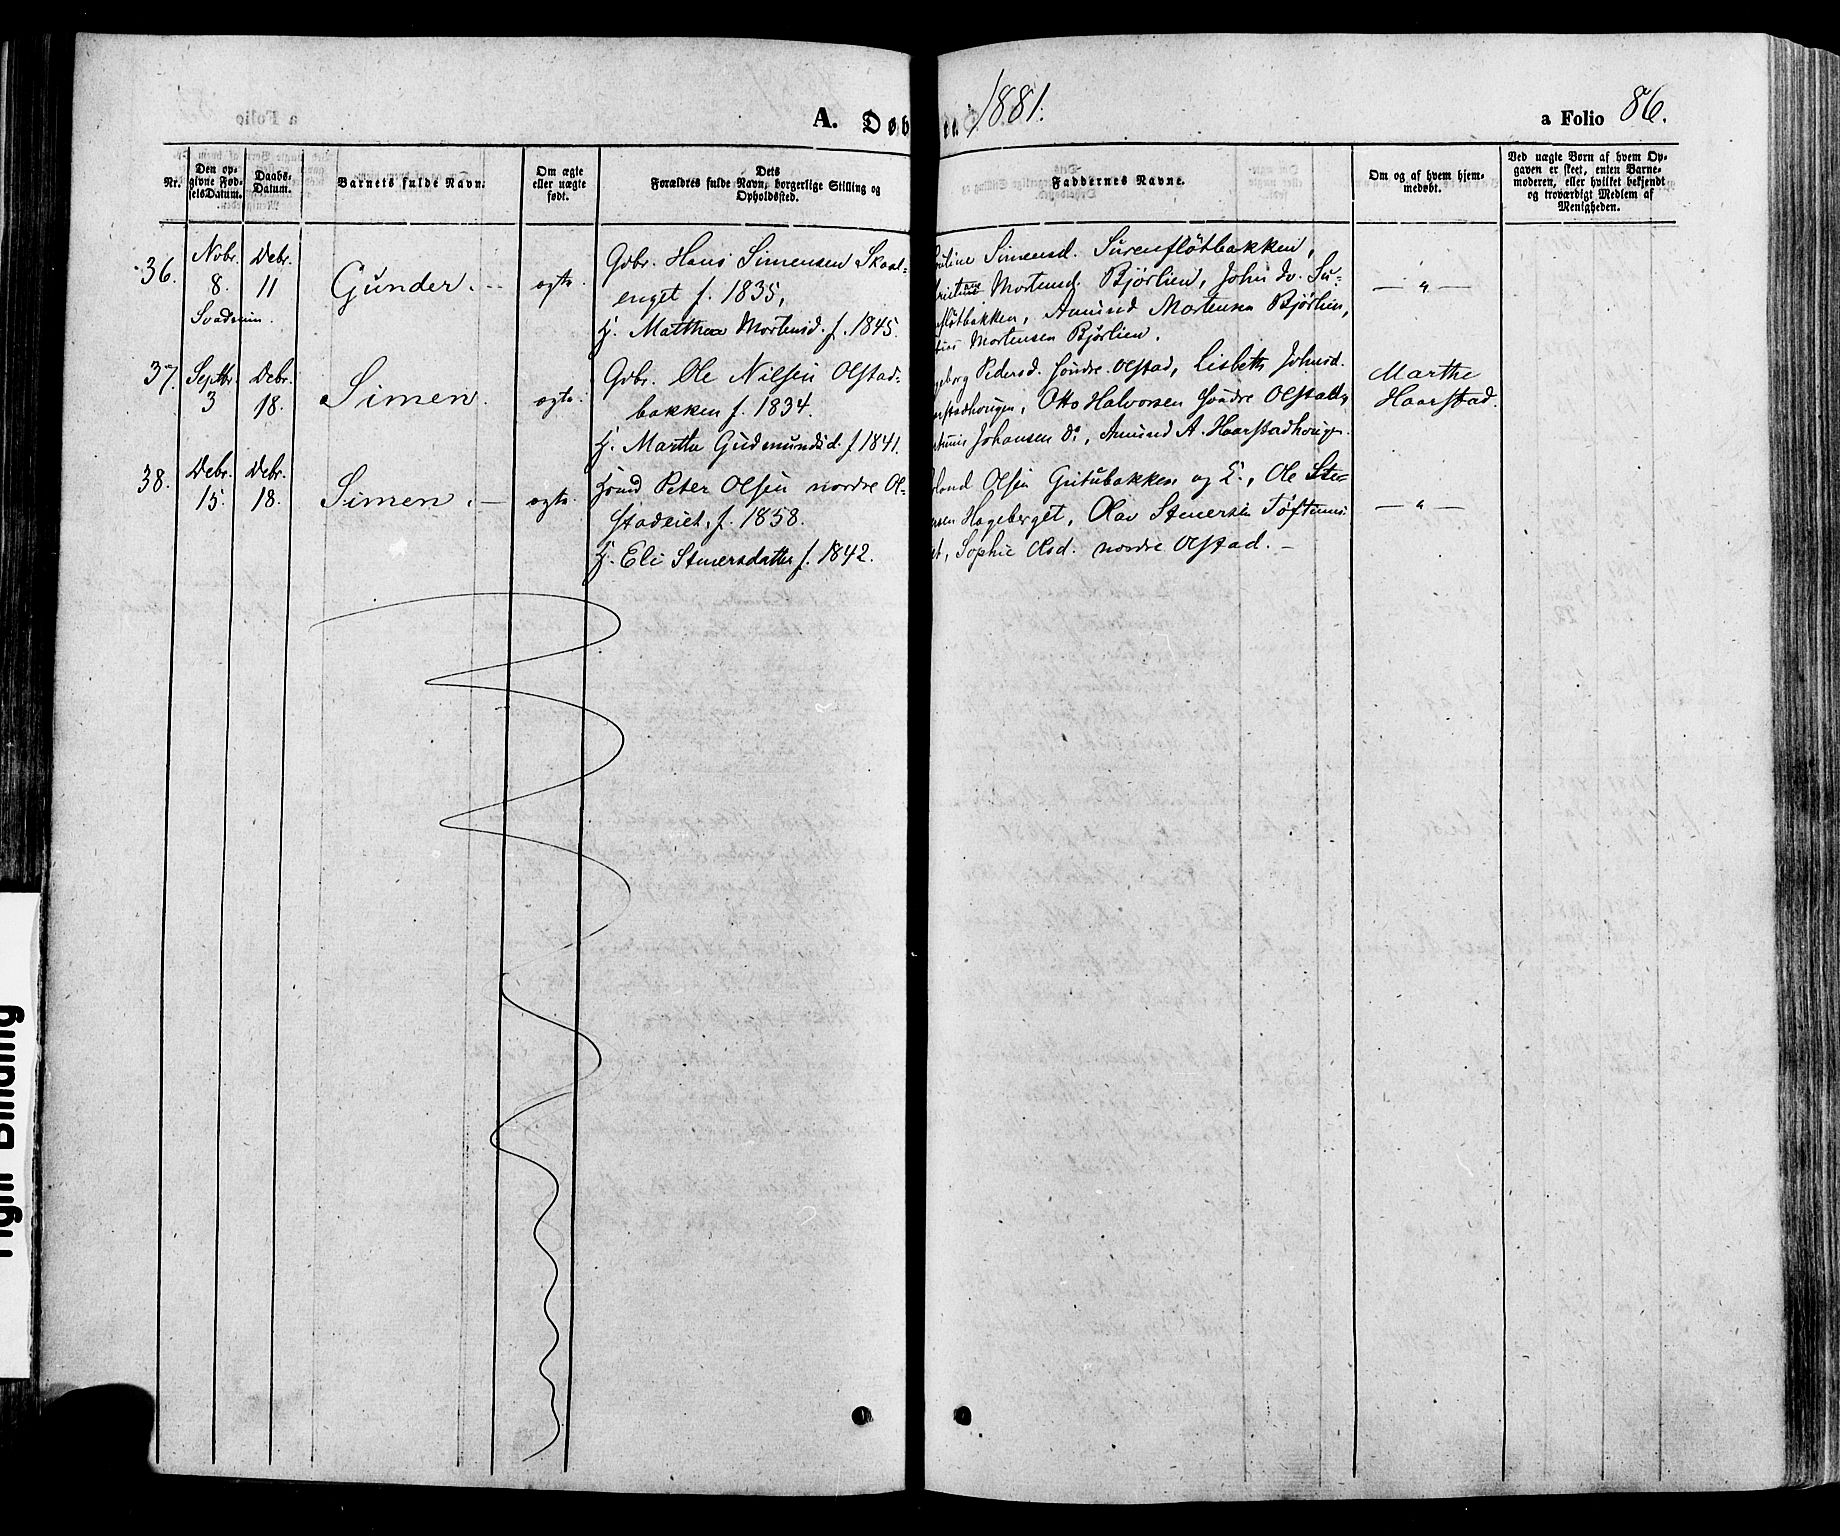 A. Døb
en. 1881.
a Folio 86.
Nr.
Den op-
givne Fød-
selsDatum.
Daabs-
Datum.
Barnets fulde Navn.
Om ægte
eller uægte
født.
Dets
Forældres fulde Navn, borgerlige Stilling og
Opholdssted.
Faddernes Navne.
Om og af hvem hjem-
medøbt.
Ved uægte Børn af hvem Op-
gaven er skeet, enten Barne-
moderen, eller hvilket bekjendt
og troværdigt Medlem af
Menigheden.
36.
Nobr.
8.
Svadsum.
Debr.
11
Gunder.
ægte.
Gbr. Hans Simensen Skaal-
enget f. 1835,
H. Matthea Mortensd. f. 1845.
Simensd. Surenfløtbakken,
Mortensd. Bjørlien, John Iv. Su-
fløtbakken, Amund Mortensen Bjørlien,
Mortensen Bjørlien.
— " —
37.
Septbr.
3
Debr.
18.
Simen.
ægte.
Gbr. Ole Nilsen Olstad-
bakken f. 1834.
H. Marthe Gudmundsd. f. 1841.
geborg Pedersd. Søndre Olstad, Lisbeth Johnsd.
Otto Halvorsen Søndre Olstad,
Johansen do, Amund A. Haarstadhougen.
Marthe
Haarstad.
38.
Debr.
15.
Debr.
18.
Simen.
ægte.
Hmd Peter Olsen nordre Ol-
stadeiet, f. 1858.
H. Eli Stenersdatter f. 1842.
Olsen Gutubakken og H., Ole Ste-
nsen Hageberget, Olav Stenersen Tøftum-
et, Sophie Olsd. nordre Olstad. —
— " —
Right Binding